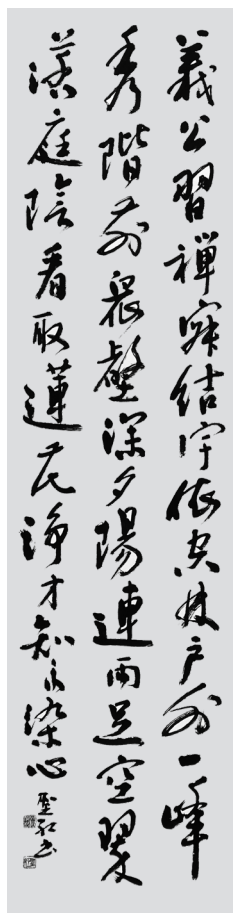 義公習禪寂結宇依空林戶外一峰
秀階前衆壑深夕陽連雨足空翠
落庭陰看取蓮花淨才知不染心
聖书